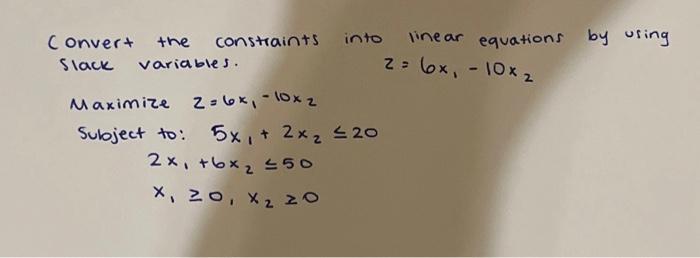 Convert the constraints into linear equations by using
Slack variables. z = 6x₁ - 10x₂
Maximize z = 6x₁ - 10x₂
Subject to: 5x₁ + 2x₂ ≤ 20
2x₁ + 6x₂ ≤ 50
x₁ ≥ 0, x₂ ≥ 0